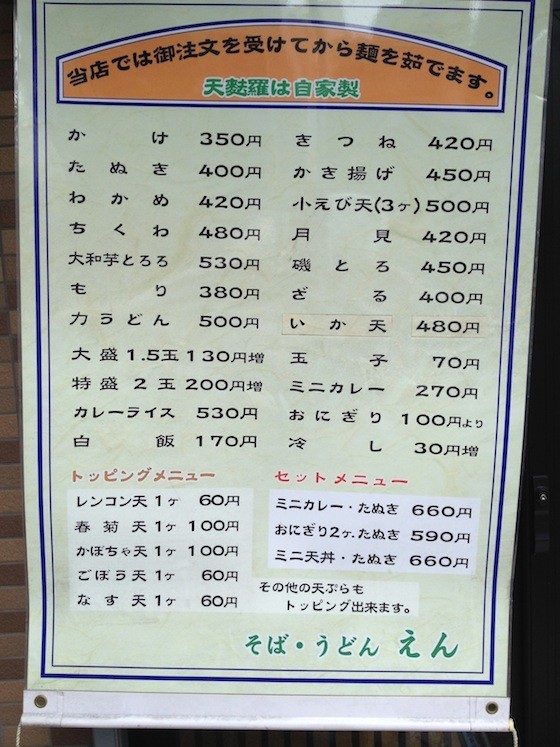 当店では御注文を受けてから麺を茹でます。
天麩羅は自家製
かけ 350円
たぬき 400円
わかめ 420円
ちくわ 480円
大和芋とろろ 530円
もり 380円
力うどん 500円
大盛1.5玉 130円増
特盛2玉 200円増
カレーライス 530円
白飯 170円
きつね 420円
かき揚げ 450円
小えび天(3ヶ) 500円
月見 420円
磯とろ 450円
ざる 400円
いか天 480円
玉子 70円
ミニカレー 270円
おにぎり 100円より
冷し 30円増
トッピングメニュー
レンコン天1ヶ 60円
春菊天1ヶ 100円
かぼちゃ天1ヶ 100円
ごぼう天1ヶ 60円
なす天1ヶ 60円
セットメニュー
ミニカレー・たぬき 660円
おにぎり2ヶ.たぬき 590円
ミニ天丼・たぬき 660円
その他の天ぷらも
トッピング出来ます。
そば・うどん えん